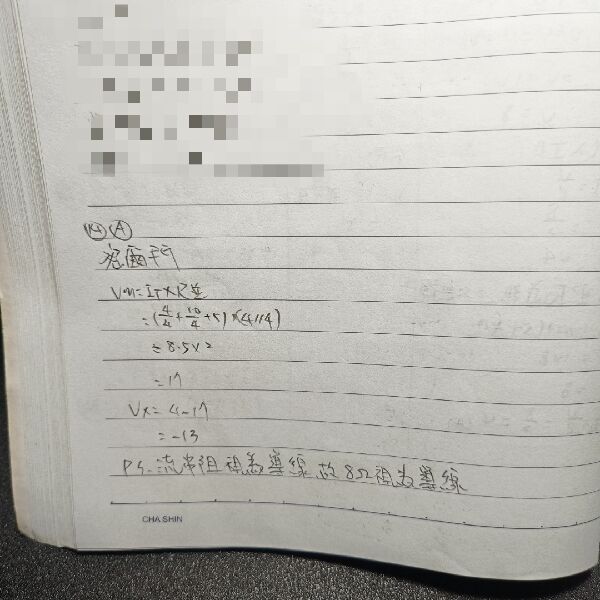 14 A
Vm=IT×R並
=(4/4+10/4+5)×(4//4)
=8.5×2
=17
Vx=4-17
=-13
PS.流串阻視為導線,故8Ω視為導線
CHA SHIN